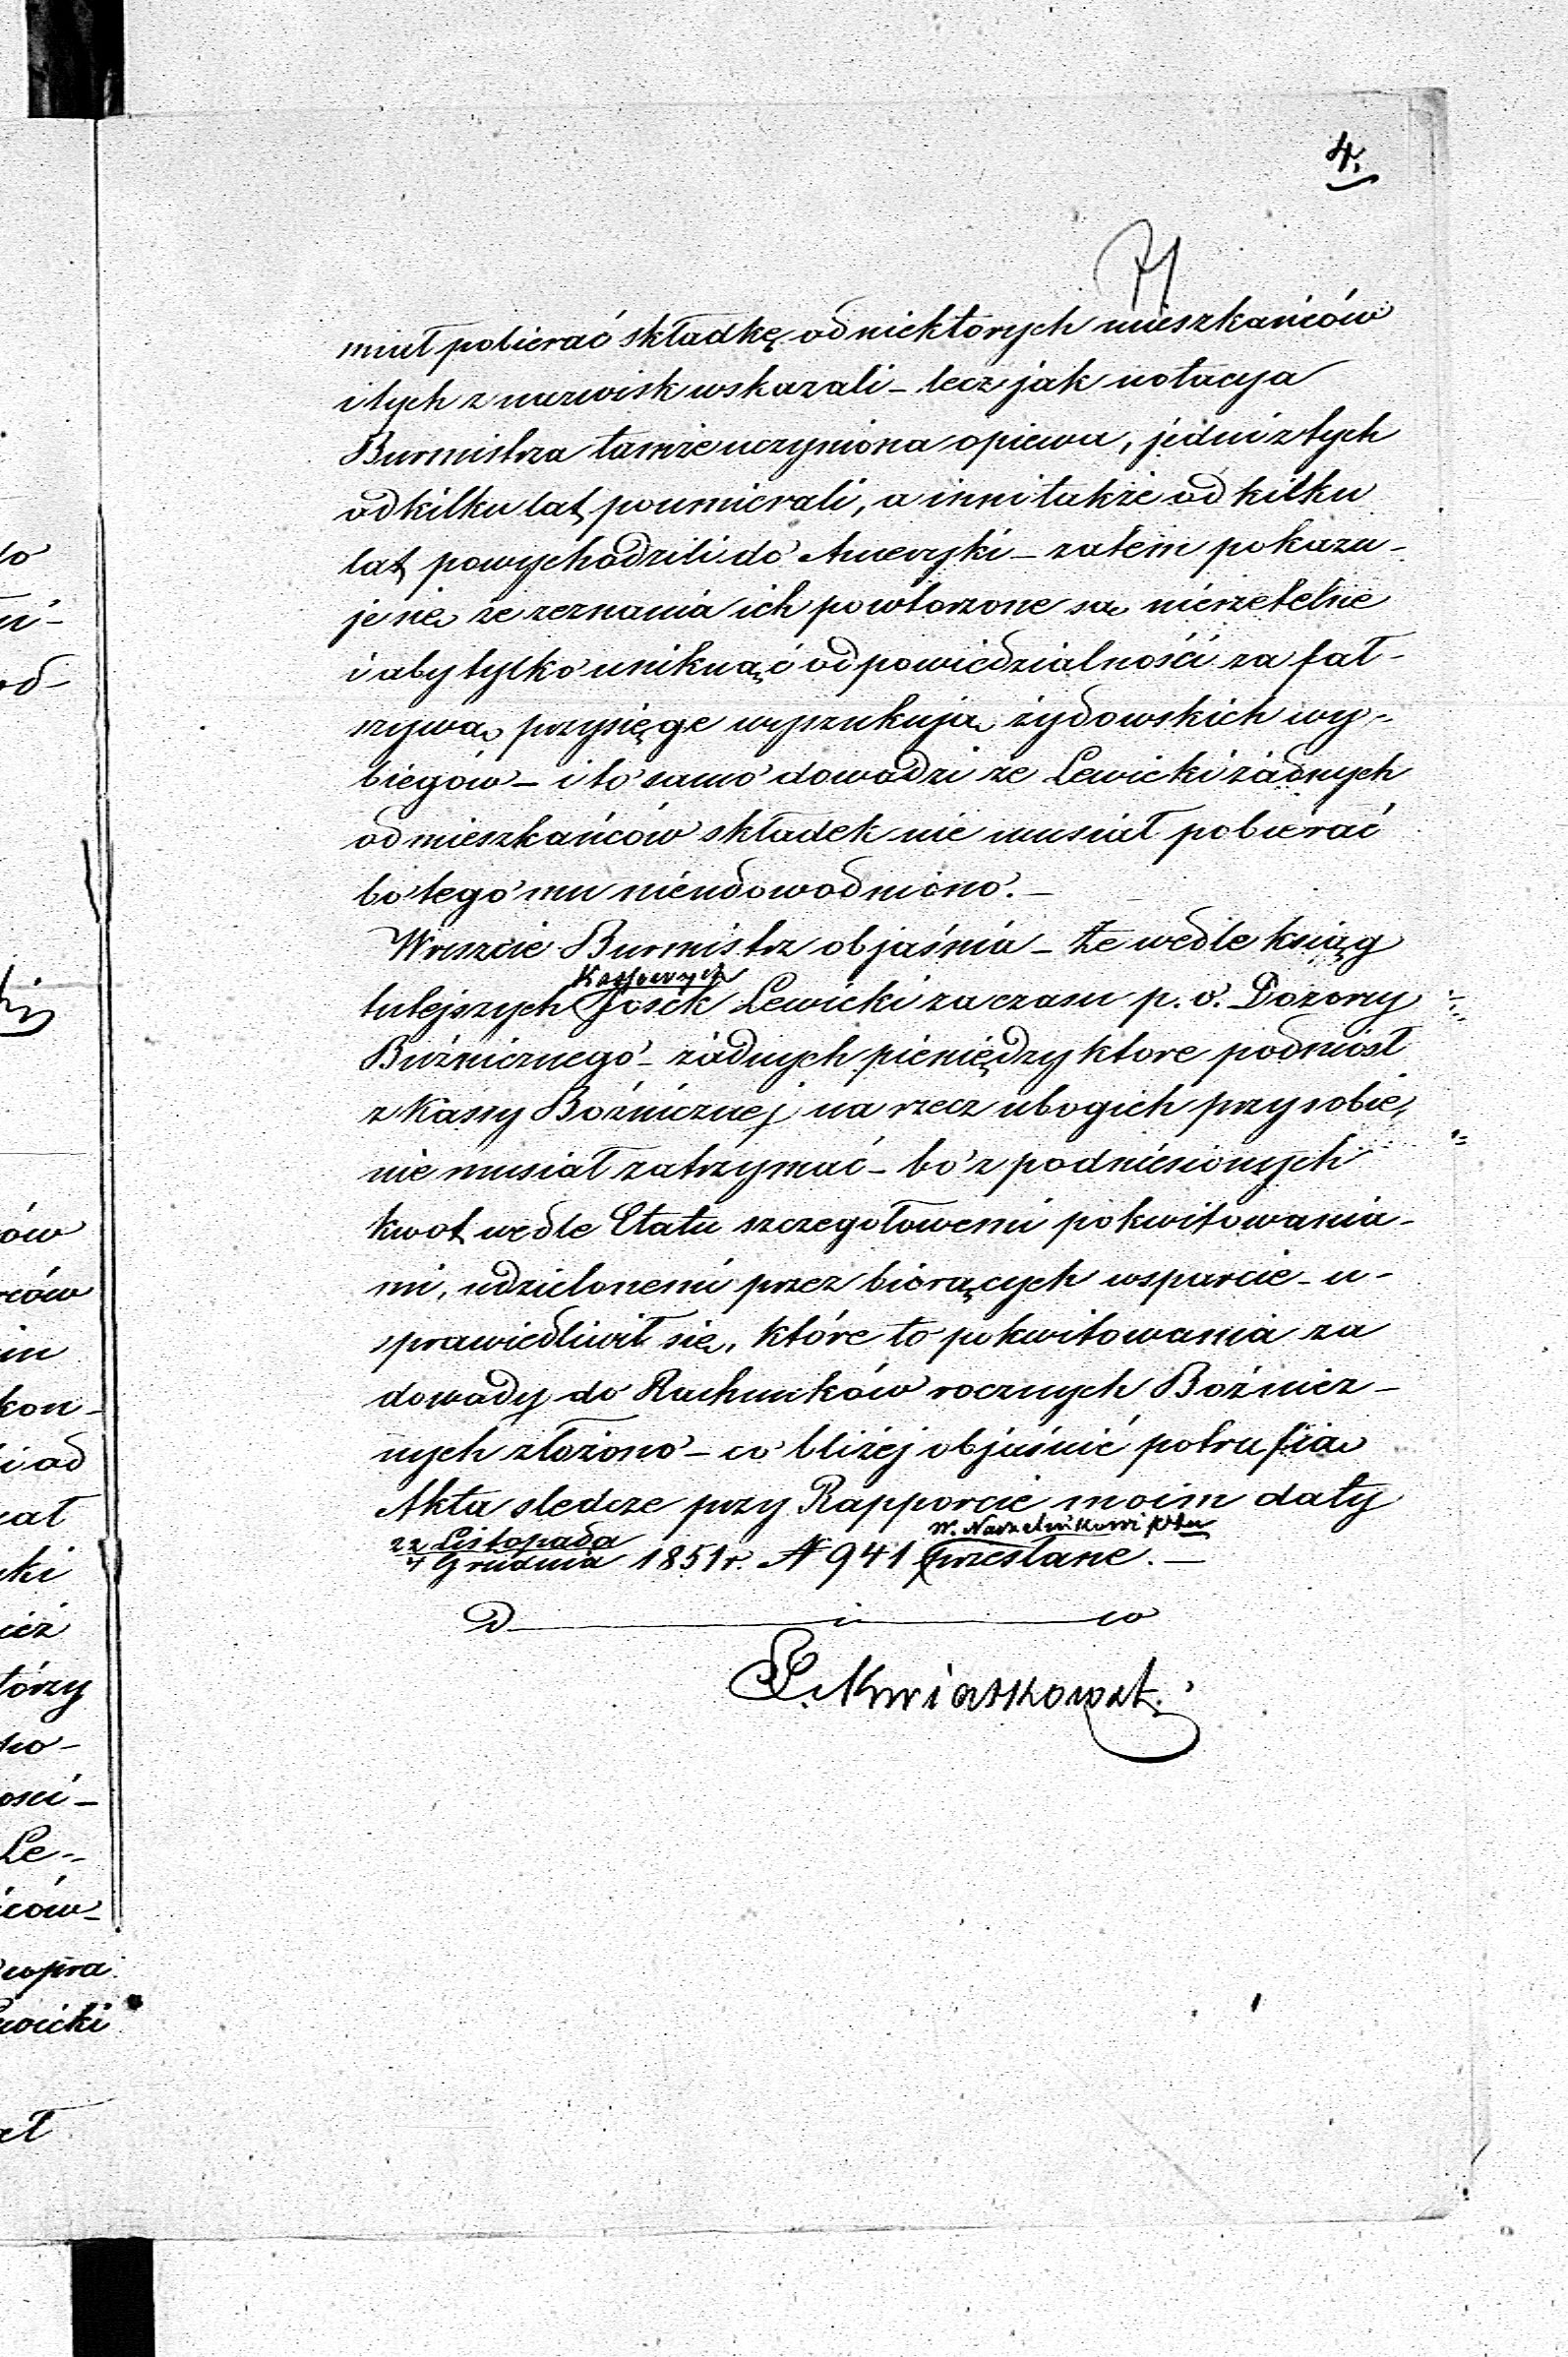 4.
miał pobierać składkę od niektorych mieszkańców
i tych z nazwisk wskazali – lecz jak notacya
Burmistrza tamże uczyniona opiewa, jedni z tych
od kilku lat poumierali, a inni także od kilku
lat powychodzili do Ameryki – zatem pokazu-
je się że zeznania ich powtorzone są nierzetelne
i aby tylko uniknąć odpowiedzialności za fał-
szywą przysięgę wyszukują żydowskich wy-
biegów – i to samo dowodzi że Lewicki żadnych
od mieszkańców składek nie musiał pobierać
bo tego mu nieudowodniono. –
Wreszcie Burmistrz objaśnia – że wedle ksiąg
Kassowych
tutejszych Josek Lewicki za czasu p. o. Dozorcy
Buźnicznego – żadnych pieniędzy ktore podniosł
z Kassy Boźnicznej na rzecz ubogich przy sobie,
nie musiał zatrzymać – bo z podniesionych
kwot wedle Etatu szczegołowemi pokwitowania-
mi, udzielonemi przez biorących wsparcie – u-
sprawiedliwił się, które to pokwitowania za
dowody do Rachunków rocznych Boźnicz-
nych złożono – co bliżej objaśnić potrafią
Akta sledcze przy Rapporcie moim daty
W. Naczelnikowi Ptu
22 Listopada
4 Grudnia 1851 r. N 941 przesłane. –
D i co
Kwiatkowsk.